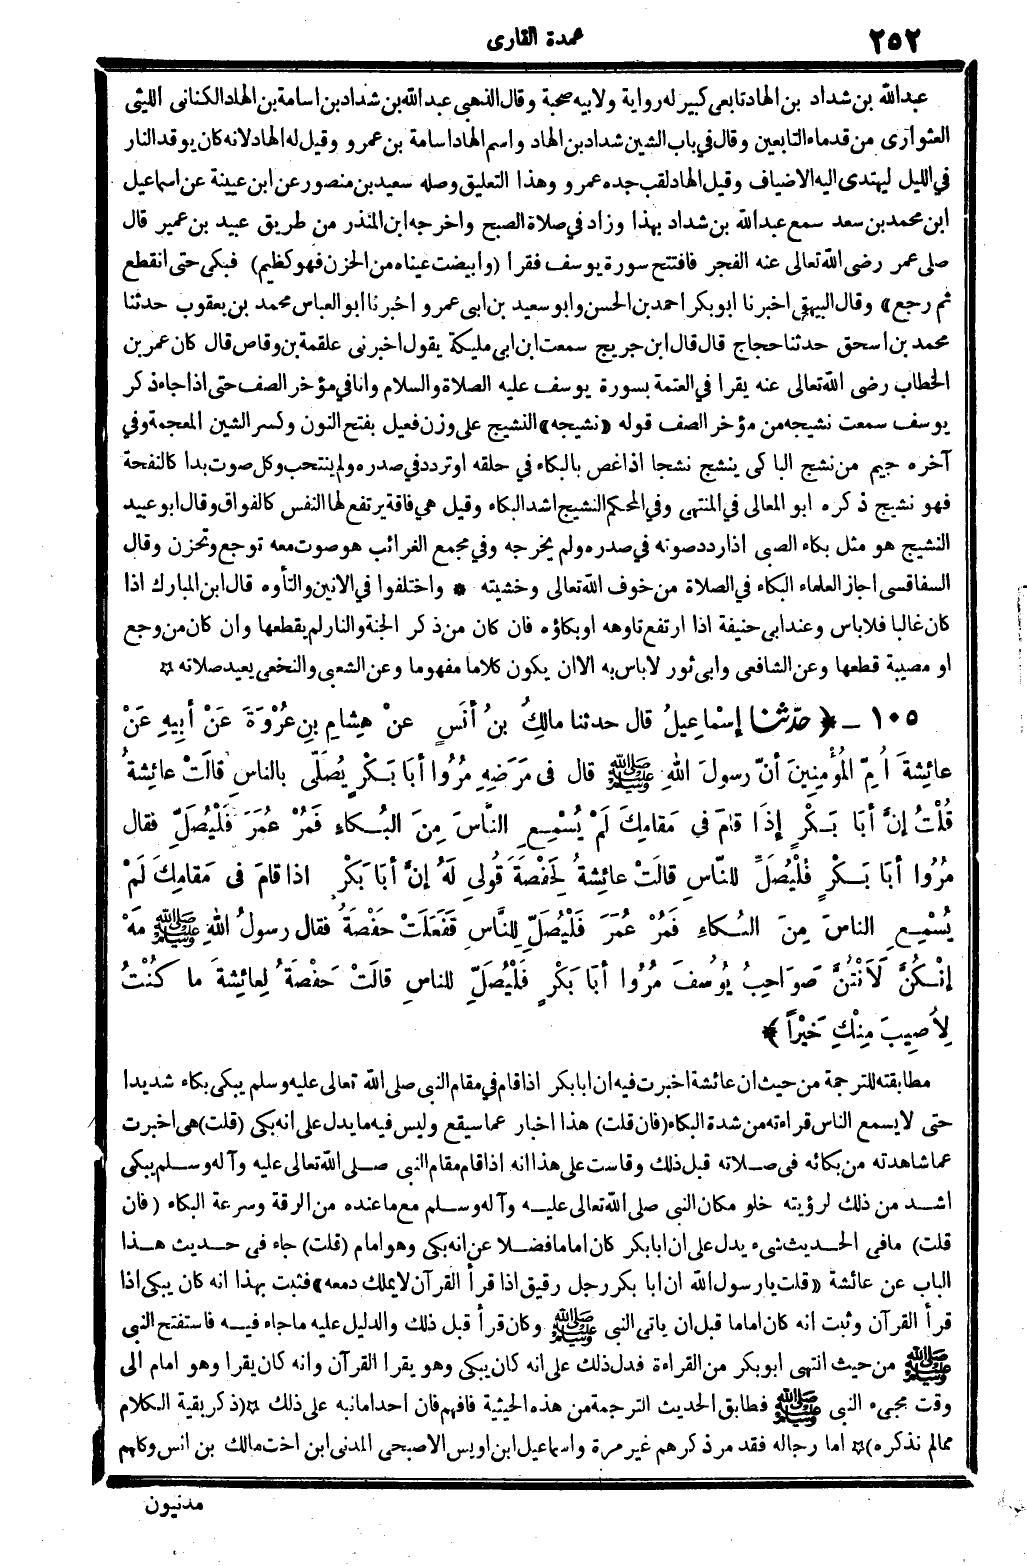 ٢٥٢
عمدة القارى
عبدالله بن شداد بن الهاد تابعى كبير له رواية ولابيه صحبة وقال الذهبى عبدالله بن شداد بن اسامة بن الهاد الكنانى الليثى
العتوارى من قدماء التابعين وقال فى باب الشين شداد بن الهاد واسم الهاد اسامة بن عمرو وقيل له الهاد لانه كان يوقد النار
فى الليل ليهتدى اليه الاضياف وقيل الهاد لقب جده عمرو وهذا التعليق وصله سعيد بن منصور عن ابن عيينة عن اسماعيل
ابن محمد بن سعد سمع عبدالله بن شداد بهذا وزاد فى صلاة الصبح واخرجه ابن المنذر من طريق عبيد بن عمير قال
صلى عمر رضى الله تعالى عنه الفجر فافتتح سورة يوسف فقرا (وابيضت عيناه من الحزن فهو كظيم) فبكى حتى انقطع
ثم رجع» وقال البيهقى اخبرنا ابوبكر احمد بن الحسن وابو سعيد بن ابى عمرو اخبرنا ابو العباس محمد بن يعقوب حدثنا
محمد بن اسحق حدثنا حجاج قال قال ابن جريج سمعت ابن ابى مليكة يقول اخبرنى علقمة بن وقاص قال كان عمر بن
الخطاب رضى الله تعالى عنه يقرا فى العتمة بسورة يوسف عليه الصلاة والسلام وانا فى مؤخر الصف حتى اذا جاء ذكر
يوسف سمعت نشيجه من مؤخر الصف قوله «نشيجه» النشيج على وزن فعيل بفتح النون وكسر الشين المعجمة وفى
آخره جيم من نشج الباكى ينشج نشجا اذا غص بالبكاء فى حلقه او تردد فى صدره ولم ينتحب وكل صوت بدا كالنفحة
فهو نشيج ذكره ابو المعالى فى المنتهى وفى المحكم النشيج اشد البكاء وقيل هى فاقة يرتفع لها النفس كالفواق وقال ابو عبيد
النشيج هو مثل بكاء الصبى اذا ردد صوته فى صدره ولم يخرجه وفى مجمع الغرائب هو صوت معه توجع وتحزن وقال
السفاقسى اجاز العلماء البكاء فى الصلاة من خوف الله تعالى وخشيته * واختلفوا فى الانين والتأوه قال ابن المبارك اذا
كان غالبا فلاباس وعند ابى حنيفة اذا ارتفع تاوهه او بكاؤه فان كان من ذكر الجنة والنار لم يقطعها وان كان من وجع
او مصيبة قطعها وعن الشافعى وابى ثور لاباس به الا ان يكون كلاما مفهوما وعن الشعبى والنخعى يعيد صلاته ☆
١٠٥ - ﴿ حدّثنا إسْماعيلُ قال حدثنا مالكُ بنُ أنَسٍ عنْ هِشامِ بنِ عُرْوَةَ عَنْ أبِيهِ عَنْ
عائِشةَ أُمِّ المُؤْمِنِينَ أنَّ رسولَ اللهِ ﷺ قال فى مَرَضِهِ مُرُوا أبا بَكْرٍ يُصَلِّى بالناسِ قالَتْ عائِشةُ
قُلْتُ إنَّ أبَا بَكْرٍ إذَا قامَ فى مَقامِكَ لَمْ يُسْمِعِ النَّاسَ مِنَ البُكاءِ فَمُرْ عُمَرَ فَلْيُصَلِّ فقال
مُرُوا أبَا بَكْرٍ فَلْيُصَلِّ للنَّاسِ قالَتْ عائِشةُ لِحَفْصَةَ قُولِى لَهُ إنَّ أبَا بَكْرٍ اذا قامَ فى مَقامِكَ لَمْ
يُسْمِعِ الناسَ مِنَ البُكاءِ فَمُرْ عُمَرَ فَلْيُصَلِّ لِلنَّاسِ فَفَعَلَتْ حَفْصَةُ فقال رسولُ اللهِ ﷺ مَهْ
إنْكُنَّ لَأَنْتُنَّ صَوَاحِبُ يُوسُفَ مُرُوا أبَا بَكْرٍ فَلْيُصَلِّ للناسِ قالَتْ حَفْصَةُ لِعائِشةَ ما كُنْتُ
لِأُصِيبَ مِنْكِ خَيْراً ﴾
مطابقته للترجمة من حيث ان عائشة اخبرت فيه ان ابا بكر اذا قام فى مقام النبى صلى الله تعالى عليه وسلم يبكى بكاء شديدا
حتى لا يسمع الناس قراءته من شدة البكاء (فان قلت) هذا اخبار عما سيقع وليس فيه ما يدل على انه بكى (قلت) هى اخبرت
عما شاهدته من بكائه فى صلاته قبل ذلك وقاست على هذا انه اذا قام مقام النبى صلى الله تعالى عليه وآله وسلم يبكى
اشد من ذلك لرؤيته خلو مكان النبى صلى الله تعالى عليه وآله وسلم مع ما عنده من الرقة وسرعة البكاء (فان
قلت) ما فى الحديث شىء يدل على ان ابا بكر كان اماما فضلا عن انه بكى وهو امام (قلت) جاء فى حديث هذا
الباب عن عائشة «قلت يا رسول الله ان ابا بكر رجل رقيق اذا قرأ القرآن لا يملك دمعه» فثبت بهذا انه كان يبكى اذا
قرأ القرآن وثبت انه كان اماما قبل ان ياتى النبى ﷺ وكان قرأ قبل ذلك والدليل عليه ما جاء فيه فاستفتح النبى
ﷺ من حيث انتهى ابو بكر من القراءة فدل ذلك على انه كان يبكى وهو يقرا القرآن وانه كان يقرا وهو امام الى
وقت مجىء النبى ﷺ فطابق الحديث الترجمة من هذه الحيثية فافهم فان احدا ما نبه على ذلك ☆ (ذكر بقية الكلام
ممالم نذكره) ☆ اما رجاله فقد مر ذكرهم غير مرة واسماعيل ابن اويس الاصبحى المدنى ابن اخت مالك بن انس وكلهم
مدنيون